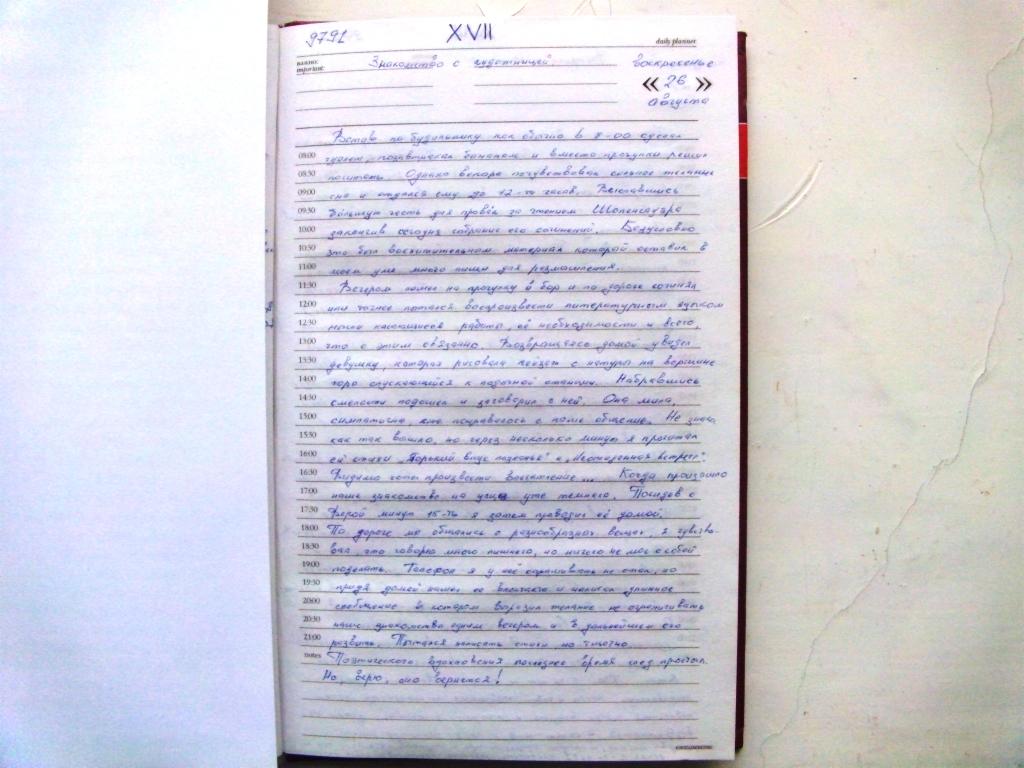 9791 XVII daily planner
важно:
important: Знакомство с художницей. воскресенье
« 26 »
августа
Встав по будильнику как обычно в 8-00 сделал
08:00 туалет, позавтракал бананом и вместо прогулки решил
08:30 почитать. Однако вскоре почувствовал сильное желание
09:00 сна и отдался ему до 12-ти часов. Выспавшись
09:30 бо́льшую часть дня провёл за чтением Шопенгауэра
10:00 закончив сегодня собрание его сочинений. Безусловно
10:30 это был восхитительный материал который оставил в
11:00 моём уме много пищи для размышления.
11:30 Вечером пошел на прогулку в бор и по дороге сочинял
12:00 или точнее пытался воспроизвести литературным языком
12:30 мысли касающиеся работы, её необходимости и всего,
13:00 что с этим связанно. Возвращаясь домой увидел
13:30 девушку, которая рисовала пейзаж с натуры на вершине
14:00 горы спускающийся к лодочной станции. Набравшись
14:30 смелости подошел и заговорил с ней. Она мила,
15:00 симпатична, мне понравилось с нею общение. Не знаю
15:30 как так вышло, но через несколько минут я прочитал
16:00 ей стихи „Горький вкус" и „Неожиданная встреча".
16:30 Видимо хотел произвести впечатление... Когда произошло
17:00 наше знакомство на улице уже темнело. Посидев с
17:30 Верой минут 15-ть я затем проводил её домой.
18:00 По дороге мы общались о разнообразных вещах, я чувство-
18:30 вал, что говорю много лишнего, но ничего не мог с собой
19:00 поделать. Телефон я у неё спрашивать не стал, но
19:30 придя домой нашел её вконтакте и написал длинное
20:00 сообщение в котором выразил желание не ограничивать
20:30 наше знакомство одним вечером и в дальнейшем его
21:00 развить. Пытался написать стихи но тщетно.
notes Поэтического вдохновения последнее время след простыл.
Но, верю, оно вернется!